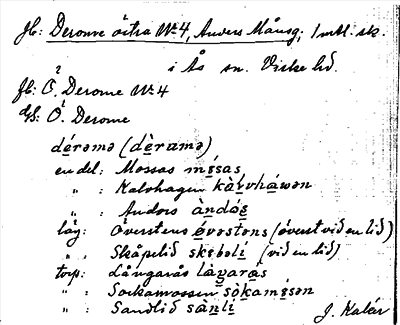 Jb: Derome östra Nr 4, Anders Månsg; 1 mtl. sk.
i Ås sn. Viske hd.
Jb: Ö. Derome Nr 4
Gs: Ö. Derome
dérəmə (dèramə)
en del: Mossas mósas
" : Kalvhagen kàlvháwən
" : Anders àndəs
läg: Överstens évərstəns (överst vid en lid)
" : Skåpelid skəbəlí (vid en lid)
torp: Långarås làŋarås
" : Sockamossen sòkaməsən
" : Sandlid sànlí
J. Kalén